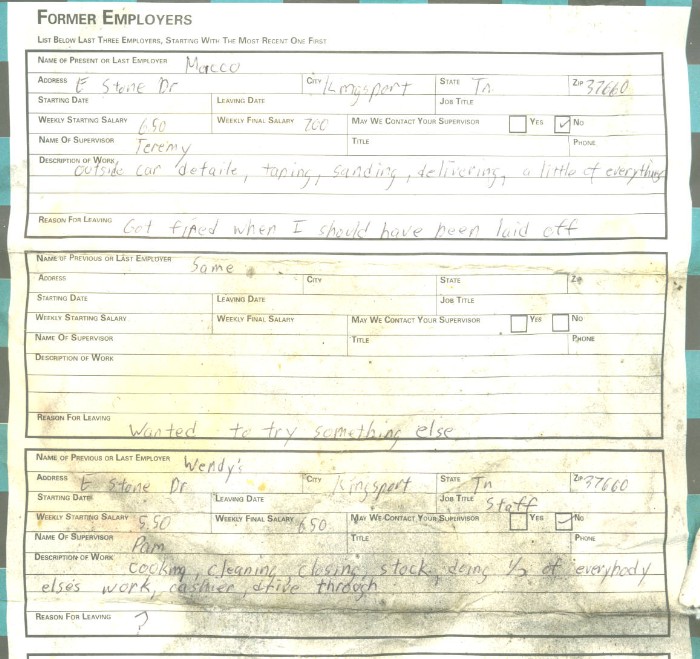 FORMER EMPLOYERS
LIST BELOW LAST THREE EMPLOYERS, STARTING WITH THE MOST RECENT ONE FIRST
NAME OF PRESENT OR LAST EMPLOYER Macco
ADDRESS E Stone Dr CITY Kingsport STATE Tn ZIP 37660
STARTING DATE LEAVING DATE JOB TITLE
WEEKLY STARTING SALARY 6.50 WEEKLY FINAL SALARY 700 MAY WE CONTACT YOUR SUPERVISOR YES NO
NAME OF SUPERVISOR Jeremy TITLE PHONE
DESCRIPTION OF WORK outside car detaile, taping, sanding, delivering, a little of everything
REASON FOR LEAVING Got fired when I should have been laid off
NAME OF PREVIOUS OR LAST EMPLOYER Same
ADDRESS CITY STATE ZIP
STARTING DATE LEAVING DATE JOB TITLE
WEEKLY STARTING SALARY WEEKLY FINAL SALARY MAY WE CONTACT YOUR SUPERVISOR YES NO
NAME OF SUPERVISOR TITLE PHONE
DESCRIPTION OF WORK
REASON FOR LEAVING Wanted to try something else
NAME OF PREVIOUS OR LAST EMPLOYER Wendy's
ADDRESS E Stone Dr CITY Kingsport STATE Tn ZIP 37660
STARTING DATE LEAVING DATE JOB TITLE Staff
WEEKLY STARTING SALARY 5.50 WEEKLY FINAL SALARY 6.50 MAY WE CONTACT YOUR SUPERVISOR YES NO
NAME OF SUPERVISOR Pam TITLE PHONE
DESCRIPTION OF WORK cooking, cleaning, closing, stock, doing 1/2 of everybody
else's work, cashier, drive through
REASON FOR LEAVING ?